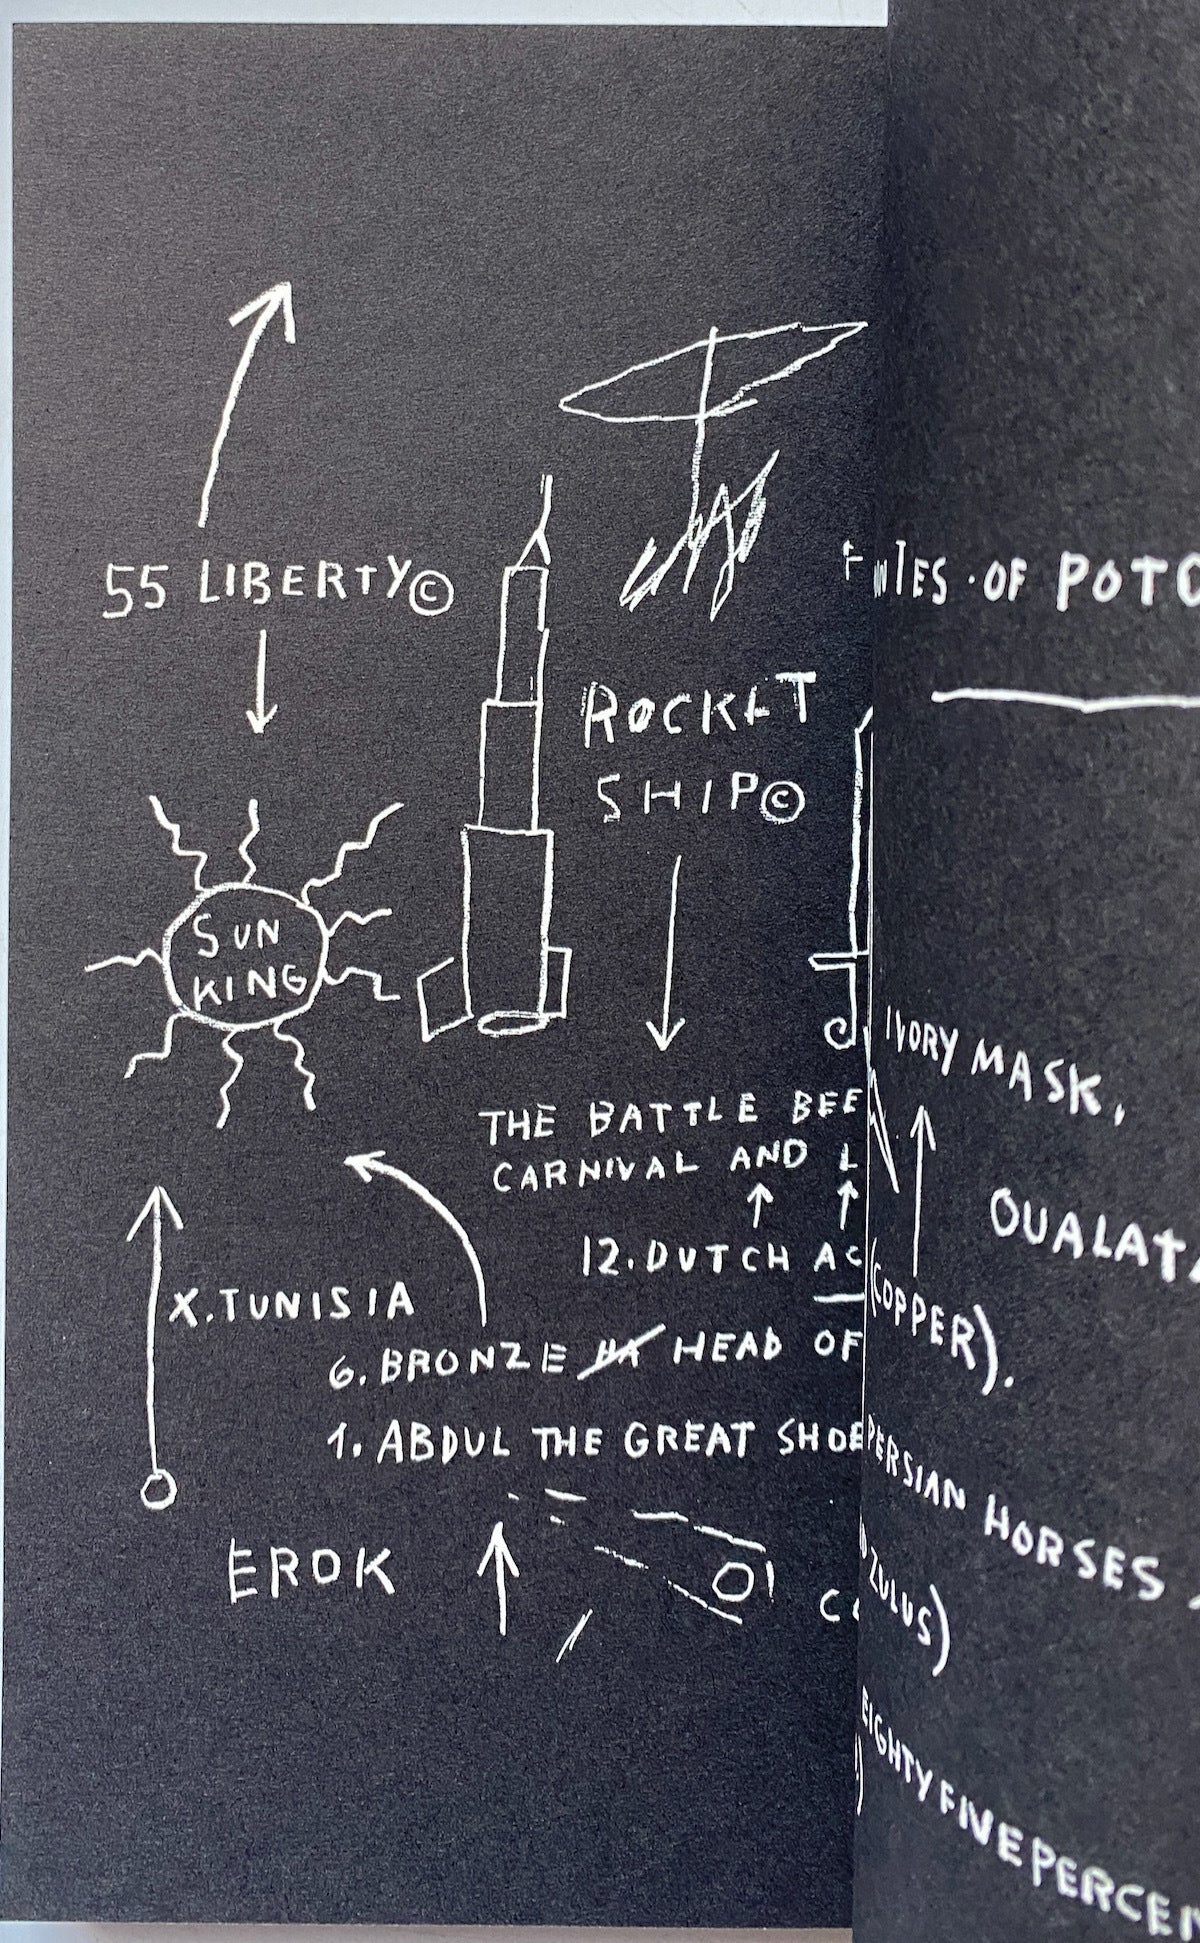 55 LIBERTY©
ROCKET
SHIP©
SUN
KING
THE BATTLE BE
CARNIVAL AND L
12. DUTCH AC
X. TUNISIA
6. BRONZE HEAD OF
1. ABDUL THE GREAT SHOE
EROK
OF POTO
IVORY MASK,
OUALATA
(COPPER).
PERSIAN HORSES
ZULUS)
EIGHTY FIVE PERCEN